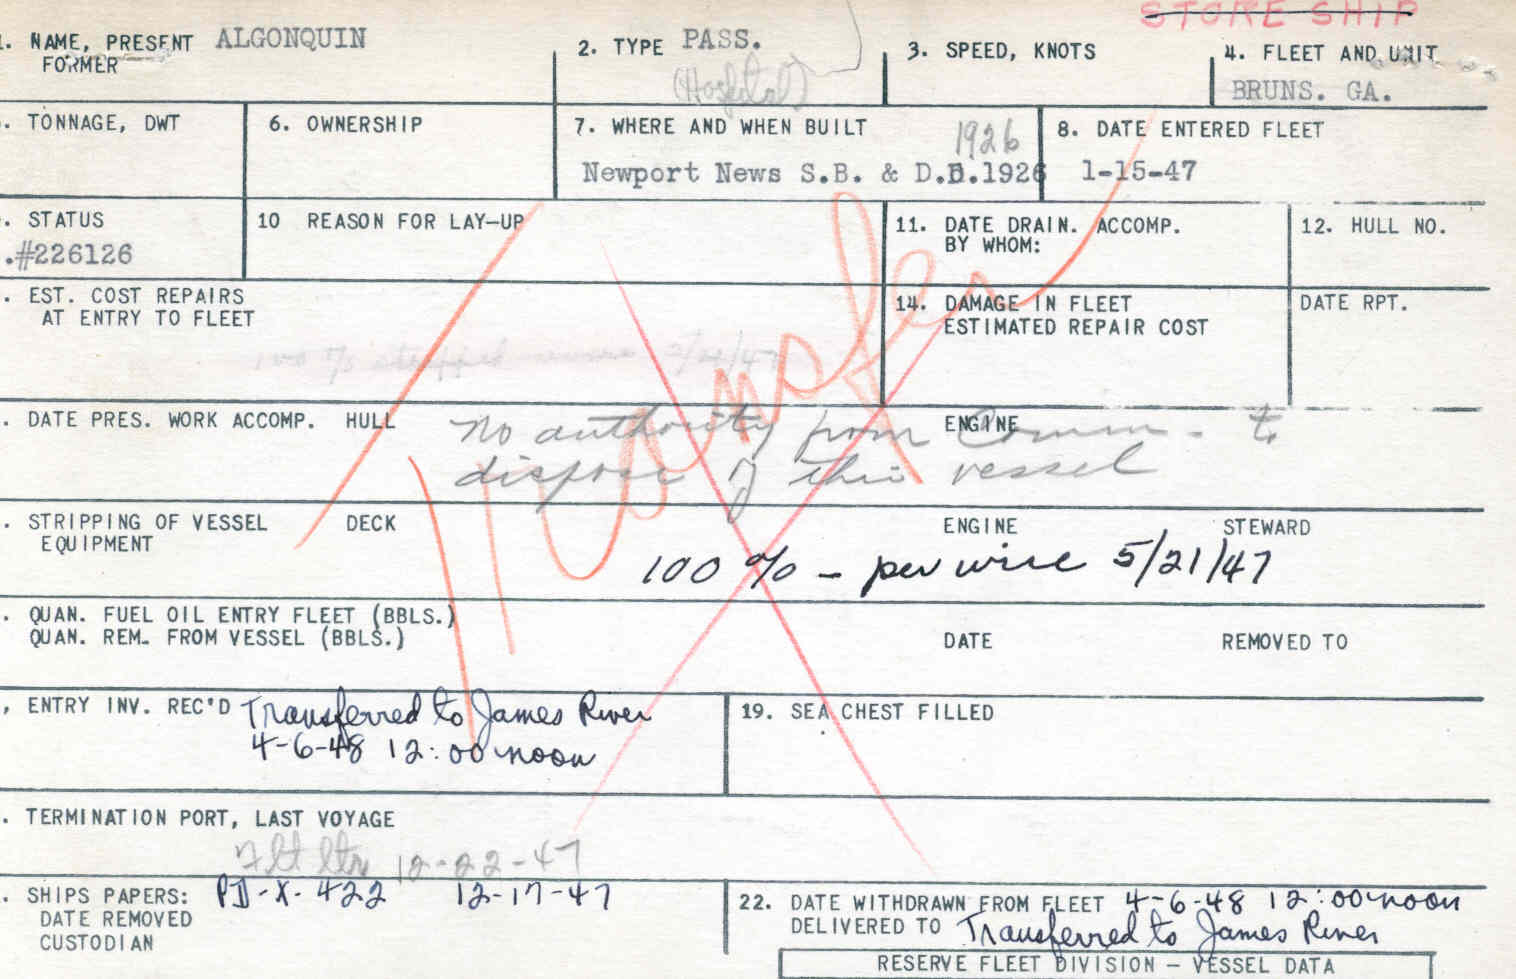 STORE SHIP
1. NAME, PRESENT ALGONQUIN
FORMER
2. TYPE PASS.
(Hospital)
3. SPEED, KNOTS
4. FLEET AND UNIT
BRUNS. GA.
. TONNAGE, DWT
6. OWNERSHIP
7. WHERE AND WHEN BUILT
1926
Newport News S.B. & D.D.1926
8. DATE ENTERED FLEET
1-15-47
. STATUS
.#226126
10 REASON FOR LAY-UP
11. DATE DRAIN. ACCOMP.
BY WHOM:
12. HULL NO.
. EST. COST REPAIRS
AT ENTRY TO FLEET
100 % stripped 5/21/47
14. DAMAGE IN FLEET
ESTIMATED REPAIR COST
DATE RPT.
Transfer
. DATE PRES. WORK ACCOMP. HULL
ENGINE
No authority from Comm. to
dispose of this vessel
. STRIPPING OF VESSEL DECK
EQUIPMENT
ENGINE
STEWARD
100 % - per wire 5/21/47
. QUAN. FUEL OIL ENTRY FLEET (BBLS.)
QUAN. REM. FROM VESSEL (BBLS.)
DATE
REMOVED TO
, ENTRY INV. REC'D Transferred to James River
4-6-48 12:00 noon
19. SEA CHEST FILLED
. TERMINATION PORT, LAST VOYAGE
Flt ltr 12-22-47
. SHIPS PAPERS: PD-X-422 12-17-47
DATE REMOVED
CUSTODIAN
22. DATE WITHDRAWN FROM FLEET 4-6-48 12:00 noon
DELIVERED TO Transferred to James River
RESERVE FLEET DIVISION - VESSEL DATA